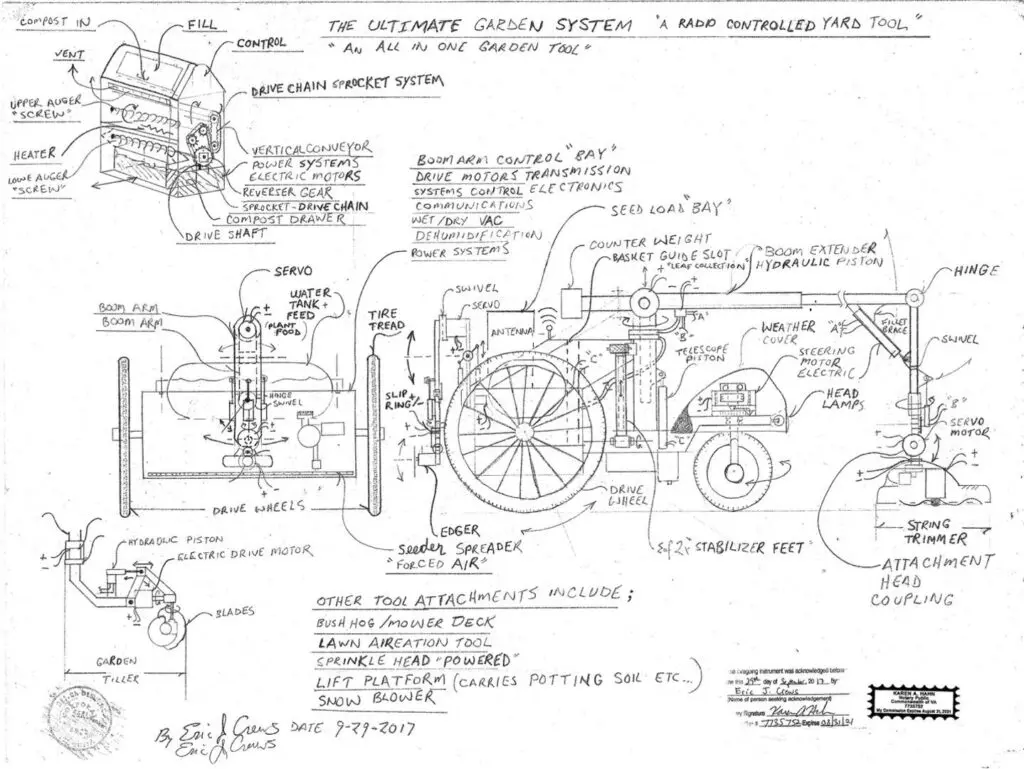 THE ULTIMATE GARDEN SYSTEM "A RADIO CONTROLLED YARD TOOL"
"AN ALL IN ONE GARDEN TOOL"
COMPOST IN
FILL
CONTROL
VENT
DRIVE CHAIN SPROCKET SYSTEM
UPPER AUGER
"SCREW"
HEATER
LOWE AUGER
"SCREW"
VERTICAL CONVEYOR
POWER SYSTEMS
ELECTRIC MOTORS
REVERSER GEAR
SPROCKET-DRIVE CHAIN
COMPOST DRAWER
DRIVE SHAFT
BOOM ARM CONTROL "BAY"
DRIVE MOTORS TRANSMISSION
SYSTEMS CONTROL ELECTRONICS
COMMUNICATIONS
WET/DRY VAC
DEHUMIDIFICATION
POWER SYSTEMS
SEED LOAD "BAY"
COUNTER WEIGHT
BASKET GUIDE SLOT
"LEAF COLLECTION"
"BOOM EXTENDER
HYDRAULIC PISTON
HINGE
SERVO
BOOM ARM
BOOM ARM
WATER
TANK +
FEED
(PLANT
FOOD)
HINGE
SWIVEL
TIRE
TREAD
SWIVEL
SERVO
ANTENNA
"A"
"B"
"C"
TELESCOPE
PISTON
WEATHER
COVER
STEERING
MOTOR
ELECTRIC
HEAD
LAMPS
"A"
FILLET
BRACE
SWIVEL
"B"
SERVO
MOTOR
SLIP +
RING
"C"
DRIVE WHEELS
DRIVE
WHEEL
EDGER
SEEDER SPREADER
"FORCED AIR"
STABILIZER FEET"
STRING
TRIMMER
ATTACHMENT
HEAD
COUPLING
HYDRAULIC PISTON
ELECTRIC DRIVE MOTOR
BLADES
GARDEN
TILLER
OTHER TOOL ATTACHMENTS INCLUDE;
BUSH HOG/MOWER DECK
LAWN AIREATION TOOL
SPRINKLE HEAD "POWERED"
LIFT PLATFORM (CARRIES POTTING SOIL ETC...)
SNOW BLOWER
By Eric J Crews DATE 9-29-2017
Eric J Crews
foregoing instrument was acknowledged before
me this 29th day of September, 2017 by
Eric J. Crews
(Name of person seeking acknowledgement)
Signature
7735752 Expires 08/31/21
KAREN A. HAHN
Notary Public
Commonwealth of VA
7735752
My Commission Expires August 31, 2021